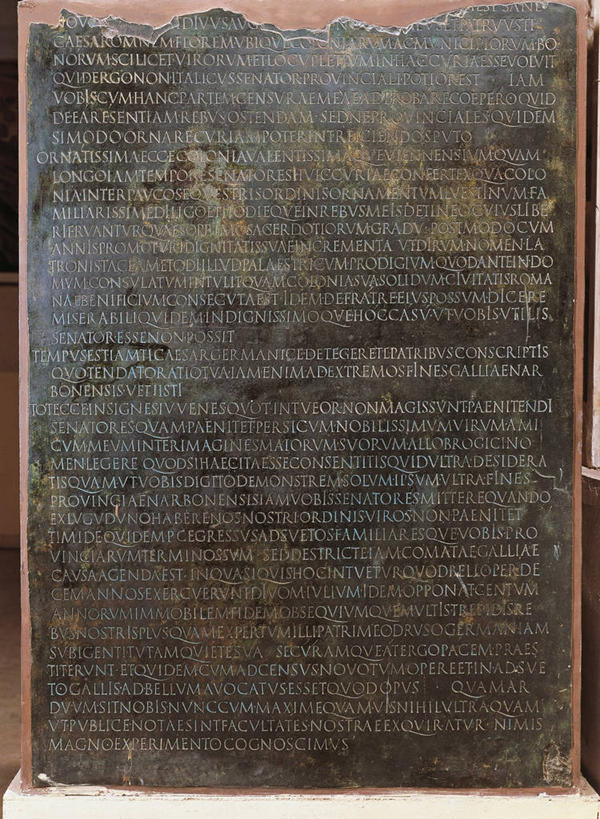 DIVVS AV ET PATRVVS TI
CAESAR OMNEM FLOREM VBIQVE COLONIARVM AC MVNICIPIORVM BO
NORVM SCILICET VIRORVM ET LOCVPLETIVM IN HAC CVRIA ESSE VOLVIT
QVID ERGO NON ITALICVS SENATOR PROVINCIALI POTIOR EST IAM
VOBIS CVM HANC PARTEM CENSVRAE MEAE ADPROBARE COEPERO QVID
DE EA RE SENTIAM REBVS OSTENDAM SED NE PROVINCIALES QVIDEM
SI MODO ORNARE CVRIAM POTERINT REICIENDOS PVTO
ORNATISSIMA ECCE COLONIA VALENTISSIMAQVE VIENNENSIVM QVAM
LONGO IAM TEMPORE SENATORES HVIC CVRIAE CONFERT EX QVA COLO
NIA INTER PAVCOS EQVESTRIS ORDINIS ORNAMENTVM L VESTINVM FA
MILIARISSIME DILIGO ET HODIEQVE IN REBVS MEIS DETINEO CVIVS LIBE
RI FRVANTVR QVAESO PRIMO SACERDOTIORVM GRADV POST MODO CVM
ANNIS PROMOTVRI DIGNITATIS SVAE INCREMENTA VT DIRVM NOMEN LA
TRONIS TACEAM ET ODI ILLVD PALAESTRICVM PRODIGIVM QVOD ANTE IN DO
MVM CONSVLATVM INTVLIT QVAM COLONIA SVA SOLIDVM CIVITATIS ROMA
NAE BENIFICIVM CONSECVTA EST IDEM DE FRATRE EIVS POSSVM DICERE
MISERABILI QVIDEM INDIGNISSIMOQVE HOC CASV VT VOBIS VTILIS
SENATOR ESSE NON POSSIT
TEMPVS EST IAM TI CAESAR GERMANICE DETEGERE TE PATRIBVS CONSCRIPTIS
QVO TENDAT ORATIO TVA IAM ENIM AD EXTREMOS FINES GALLIAE NAR
BONENSIS VENISTI
TOT ECCE INSIGNES IVVENES QVOT INTVEOR NON MAGIS SVNT PAENITENDI
SENATORES QVAM PAENITET PERSICVM NOBILISSIMVM VIRVM AMI
CVM MEVM INTER IMAGINES MAIORVM SVORVM ALLOBROGICI NO
MEN LEGERE QVOD SI HAEC ITA ESSE CONSENTITIS QVID VLTRA DESIDERA
TIS QVAM VT VOBIS DIGITO DEMONSTREM SOLVM IPSVM VLTRA FINES
PROVINCIAE NARBONENSIS IAM VOBIS SENATORES MITTERE QVANDO
EX LVGVDVNO HABERE NOS NOSTRI ORDINIS VIROS NON PAENITET
TIMIDE QVIDEM P C EGRESSVS ADSVETOS FAMILIARESQVE VOBIS PRO
VINCIARVM TERMINOS SVM SED DESTRICTE IAM COMATAE GALLIAE
CAVSA AGENDA EST IN QVA SI QVIS HOC INTVETVR QVOD BELLO PER DE
CEM ANNOS EXERCVERVNT DIVOM IVLIVM IDEM OPPONAT CENTVM
ANNORVM IMMOBILEM FIDEM OBSEQVIVMQVE MVLTIS TREPIDIS RE
BVS NOSTRIS PLVS QVAM EXPERTVM ILLI PATRI MEO DRVSO GERMANIAM
SVBIGENTI TVTAM QVIETE SVA SECVRAMQVE A TERGO PACEM PRAES
TITERVNT ET QVIDEM CVM AD CENSVS NOVO TVM OPERE ET INADSVE
TO GALLIS AD BELLVM AVOCATVS ESSET QVOD OPVS QVAM AR
DVVM SIT NOBIS NVNC CVM MAXIME QVAMVIS NIHIL VLTRA QVAM
VT PVBLICE NOTAE SINT FACVLTATES NOSTRAE EXQVIRATVR NIMIS
MAGNO EXPERIMENTO COGNOSCIMVS